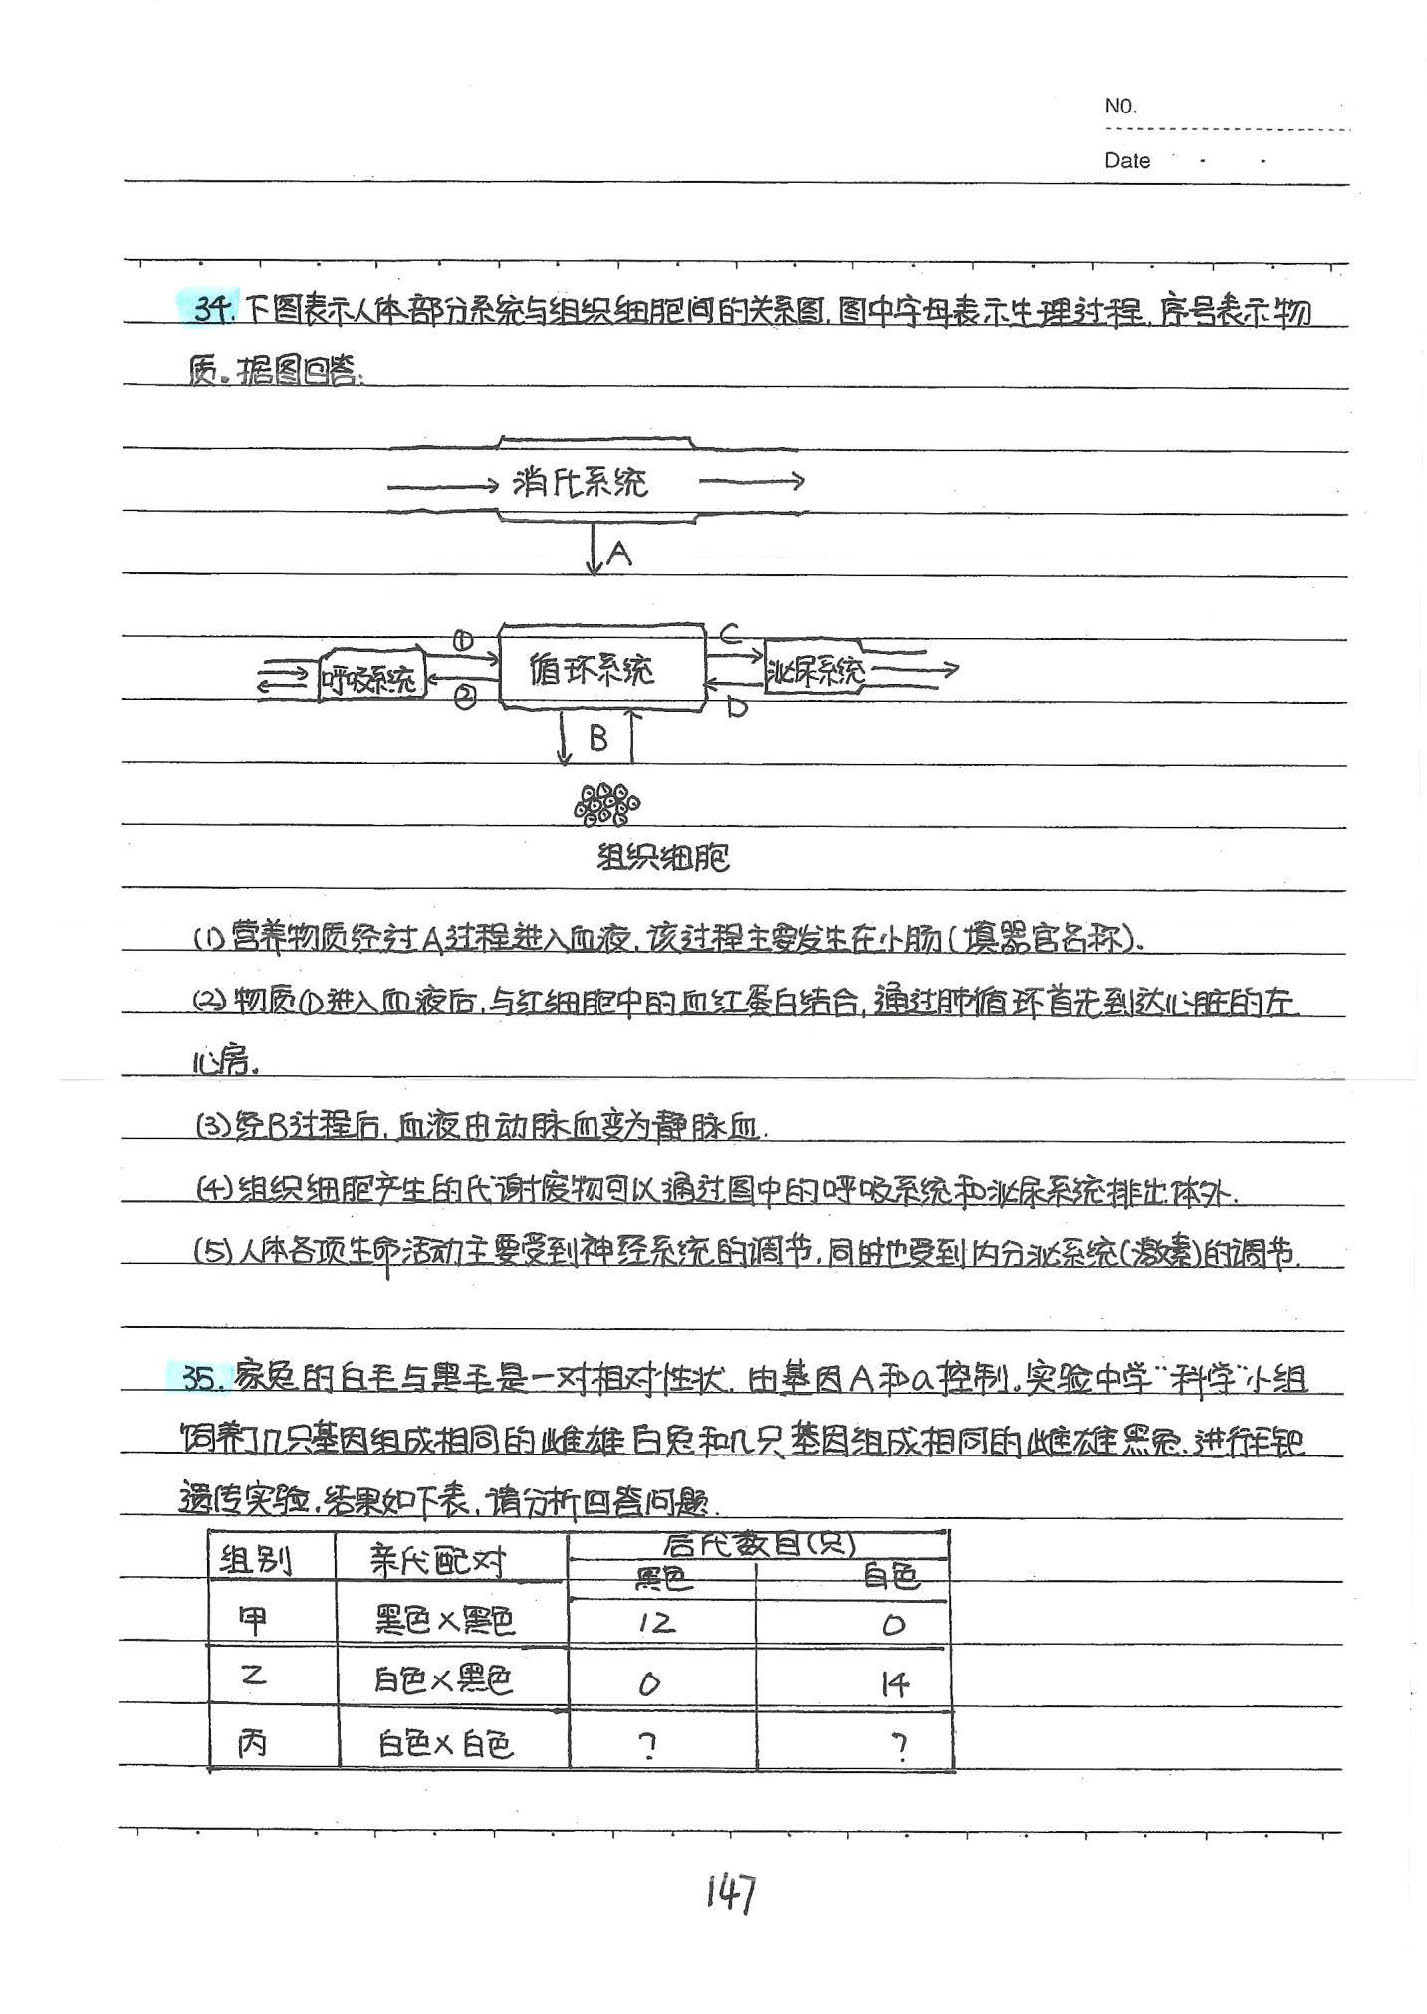 NO.
Date
34. 下图表示人体部分系统与组织细胞间的关系图,图中字母表示生理过程,序号表示物
质。据图回答:
消化系统
A
① C
呼吸系统 循环系统 泌尿系统
② D
B
组织细胞
(1)营养物质经过A过程进入血液,该过程主要发生在小肠(填器官名称).
(2)物质①进入血液后,与红细胞中的血红蛋白结合,通过肺循环首先到达心脏的左
心房.
(3)经B过程后,血液由动脉血变为静脉血.
(4)组织细胞产生的代谢废物可以通过图中的呼吸系统和泌尿系统排出体外.
(5)人体各项生命活动主要受到神经系统的调节,同时也受到内分泌系统(激素)的调节.
35. 家兔的白毛与黑毛是一对相对性状,由基因A和a控制。实验中学"科学"小组
饲养了几只基因组成相同的雌雄白兔和几只基因组成相同的雌雄黑兔,进行毛色
遗传实验,结果如下表,请分析回答问题.
组别 亲代配对 后代数目(只)
黑色 白色
甲 黑色×黑色 12 0
乙 白色×黑色 0 14
丙 白色×白色 ? ?
147